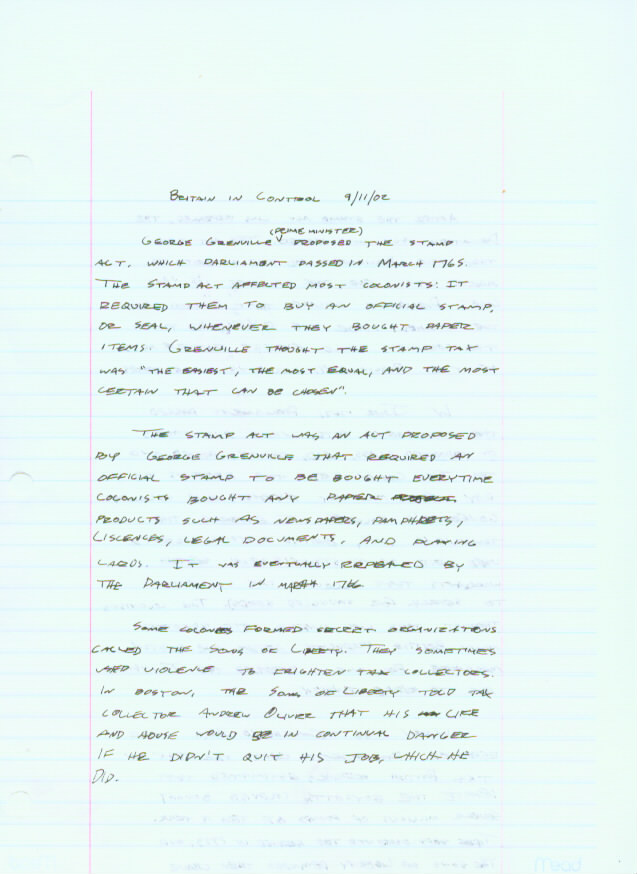 BRITAIN IN CONTROL 9/11/02
(PRIME MINISTER)
GEORGE GRENVILLE PROPOSED THE STAMP
ACT, WHICH PARLIAMENT PASSED IN MARCH 1765.
THE STAMP ACT AFFECTED MOST COLONISTS: IT
REQUIRED THEM TO BUY AN OFFICIAL STAMP,
OR SEAL, WHENEVER THEY BOUGHT PAPER
ITEMS. GRENVILLE THOUGHT THE STAMP TAX
WAS "THE EASIEST, THE MOST EQUAL, AND THE MOST
CERTAIN THAT CAN BE CHOSEN".
THE STAMP ACT WAS AN ACT PROPOSED
BY GEORGE GRENVILLE THAT REQUIRED AN
OFFICIAL STAMP TO BE BOUGHT EVERYTIME
COLONISTS BOUGHT ANY PAPER
PRODUCTS SUCH AS NEWSPAPERS, PAMPHLETS,
LISCENCES, LEGAL DOCUMENTS, AND PLAYING
CARDS. IT WAS EVENTUALLY REPEALED BY
THE PARLIAMENT IN MARCH 1766
SOME COLONIES FORMED SECRET ORGANIZATIONS
CALLED THE SONS OF LIBERTY. THEY SOMETIMES
USED VIOLENCE TO FRIGHTEN TAX COLLECTORS.
IN BOSTON, THE SONS OF LIBERTY TOLD TAX
COLLECTOR ANDREW OLIVER THAT HIS LIFE
AND HOUSE WOULD BE IN CONTINUAL DANGER
IF HE DIDN'T QUIT HIS JOB, WHICH HE
DID.